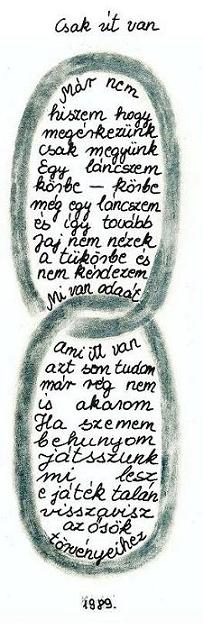 Csak út van
Már nem
hiszem hogy
megérkezünk
csak megyünk
Egy láncszem
körbe – körbe
még egy láncszem
és így tovább
Jaj nem nézek
a tükörbe és
nem kérdezem
Mi van odaát
Ami itt van
azt sem tudom
már rég nem
is akarom
Ha szemem
behunyom
játsszunk
mi lesz
e játék talán
visszavisz
az ősök
törvényeihez
1989.